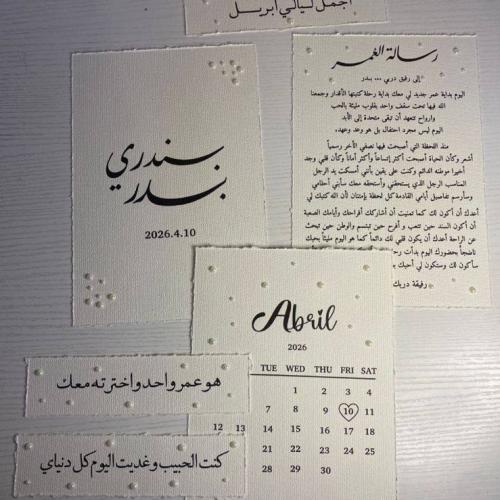 أجمل ليالي أبريل
رسالة العمر
إلى رفيق دربي ... بندر
اليوم بداية عمر جديد لي معك بداية رحلة كتبتها الأقدار وجمعنا
الله فيها تحت سقف واحد بقلوب مليئة بالحب
وارواح تتعهد أن تبقى متحدة إلى الأبد
اليوم ليس مجرد احتفال بل هو وعد وعهد.
منذ اللحظة التي أصبحت فيها نصفي الأخر رسمياً
أشعر وكأن الحياة أصبحت أكثر إتساعاً وأكثر أماناً وكأن قلبي وجد
أخيرا موطنه الدائم وكنت على يقين بأنني أمسكت يد الرجل
المناسب الرجل الذي يستحقني وأستحقه معك سأبني أحلامي
وسأرسم تفاصيل أيامي القادمة كل لحظة بإمتنان لأن الله كتبك لي
أعدك أن أكون لك كما تمنيت أن أشاركك أفراحك وأيامك الصعبة
أن أكون السند حين تتعب و أفرح حين تبتسم والوطن حين تبحث
عن الراحة أعدك أن يكون قلبي لك دائماً كما هو اليوم مليئاً بحبك
ناضجاً بحضورك اليوم بدأت
سأكون لك وستكون لي أحبك
رفيقة دربك
سندري
بندر
2026.4.10
Abril
2026
TUE WED THU FRI SAT
1 2 3 4
7 8 9 10 11
12 13 14 15 16 17 18
21 22 23 24 25
28 29 30
هو عمر واحد واخترته معك
كنت الحبيب وغديت اليوم كل دنياي